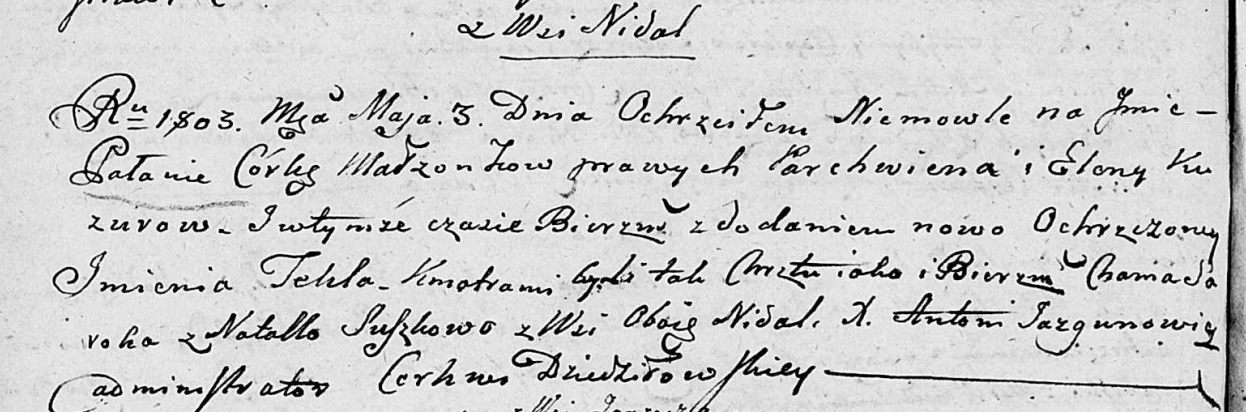 z Wsi Nidal
Ru 1803. Mca Maja. 3. Dnia Ochrzciłem Niemowle na Jmie –
Pałanie Córkę Małżonkow prawych Parchwiena i Eleny Ku
zurow. I wtymże czasie Bierzm z dodaniem nowo Ochrzczoney
Jmienia Tekla. Kmotrami byli tak Chrztu iako i Bierzm
roka z Natallo Suszkowo z Wsi Oboie Nidal. X. Antoni Jazgunowicz
administrator Cerkwi Dziedziłowskiey